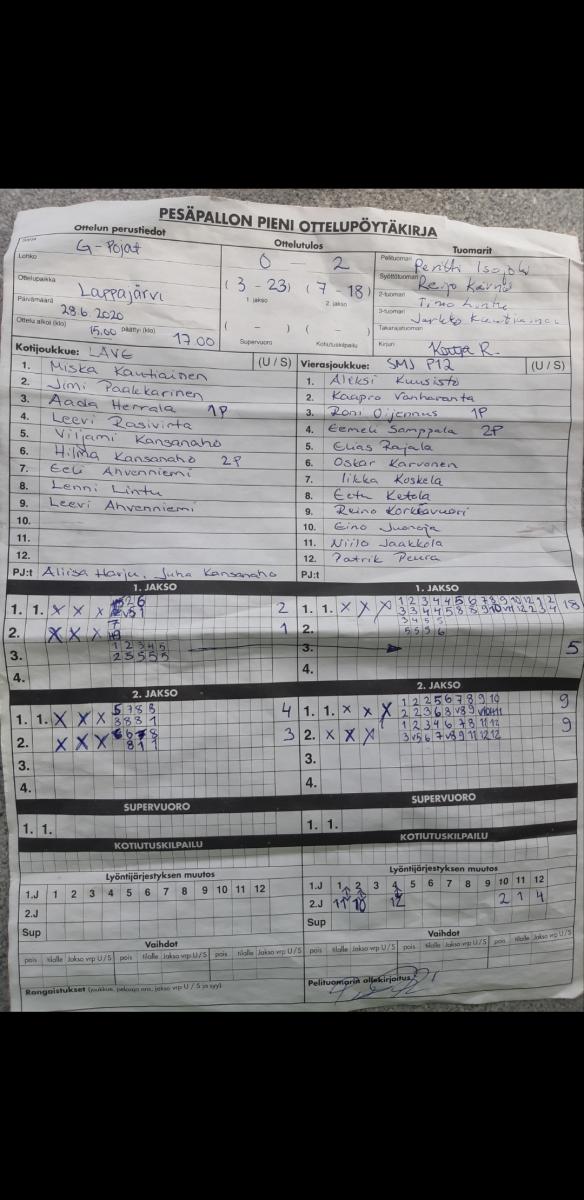 PESÄPALLON PIENI OTTELUPÖYTÄKIRJA
Ottelun perustiedot
G-Pojat
Lohko
Ottelupaikka Lappajärvi
Päivämäärä 28.6 2020
Ottelu alkoi (klo) 15.00 päättyi (klo) 17.00
Ottelutulos
0 - 2
(3 - 23) (7 - 18)
1. jakso 2. jakso
( - ) ( - )
Supervuoro Kotiutuskilpailu
Tuomarit
Pelituomari Pentti
Syöttötuomari Reijo
2-tuomari Timo
3-tuomari Jarkko
Takarajatuomari
Kirjuri Katja R.
Kotijoukkue: LAVE (U / S)
1. Miska Kautiainen
2. Jimi Paakkarinen
3. Aada Herrala 1P
4. Leevi Rasivirta
5. Viljami Kansanaho
6. Hilma Kansanaho 2P
7. Eeli Ahvenniemi
8. Lenni Lintu
9. Leevi Ahvenniemi
10.
11.
12.
PJ:t Aliisa Harju, Juha Kansanaho
Vierasjoukkue: SMJ P12 (U / S)
1. Aleksi Kuusisto
2. Kaapro Vanharanta
3. Roni Oijennus 1P
4. Eemeli Samppala 2P
5. Elias Rajala
6. Oskar Karvonen
7. Iikka Koskela
8. Eetu Ketola
9. Reino Korkiavuori
10. Eino Juoroja
11. Niilo Jaakkola
12. Patrik Peura
PJ:t
1. JAKSO
1. 1. X X X 2
2. X X X 1
3. 1 2 3 4 5
2 5 5 5 5
4.
1. JAKSO
1. 1. X X X 1 2 3 4 4 5 6 7 8 9 10 12 1 2 18
2. 3 4 5 5
5 5 5 6
3. 5
4.
2. JAKSO
1. 1. X X X 5 7 8 8 4
3 8 8 1
2. X X X 3
8 1 1
3.
4.
2. JAKSO
1. 1. X X X 1 2 2 5 6 7 8 9 10 9
2. X X X 1 2 3 4 6 7 8 11 12 9
3.
4.
SUPERVUORO
1. 1.
KOTIUTUSKILPAILU
SUPERVUORO
1. 1.
KOTIUTUSKILPAILU
Lyöntijärjestyksen muutos
1.J 1 2 3 4 5 6 7 8 9 10 11 12
2.J
Sup
Lyöntijärjestyksen muutos
1.J 1 2 3 4 5 6 7 8 9 10 11 12
2.J 11 10 12 2 1 4
Sup
Vaihdot
pois tilalle Jakso vrp U / S pois tilalle Jakso vrp U / S
Vaihdot
pois tilalle Jakso vrp U / S pois tilalle Jakso vrp U / S
Rangaistukset (joukkue, pelaaja nro, jakso vrp U / S ja syy)
Pelituomarin allekirjoitus